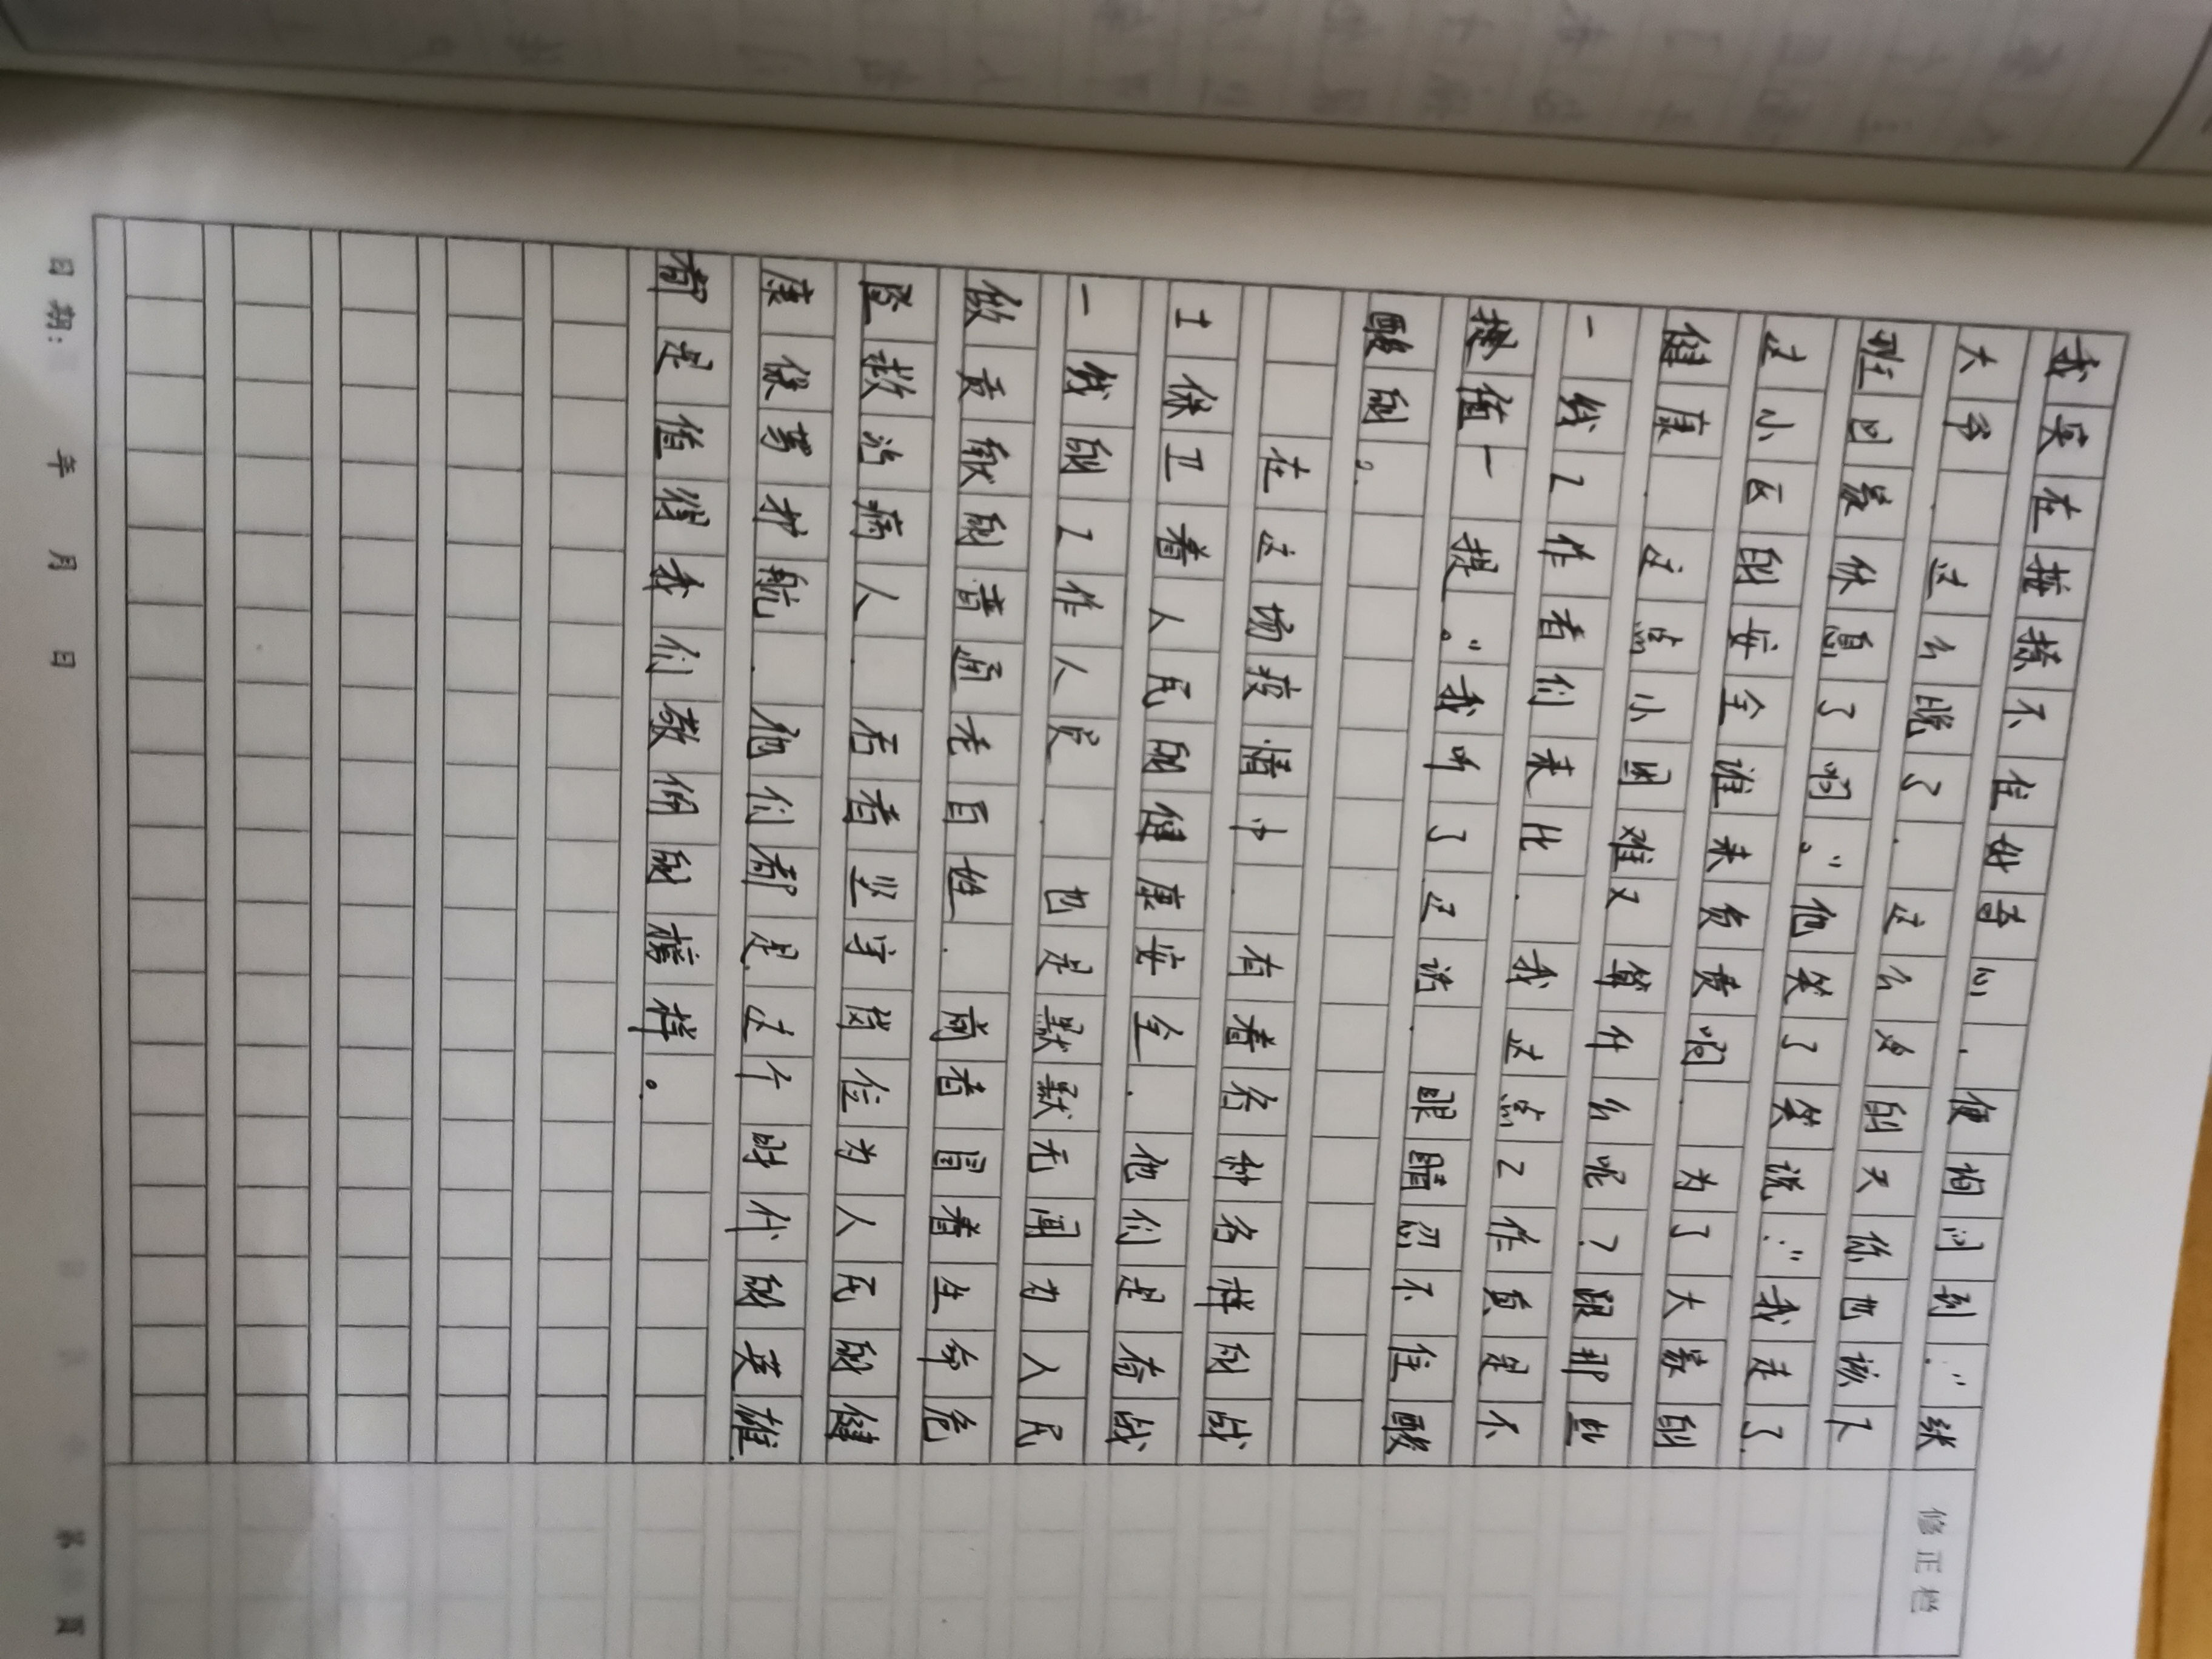 我实在按捺不住好奇心，便询问到："张
大爷，这么晚了，这么冷的天你也该下
班回家休息了啊。"他笑了笑说："我走了
这小区的安全谁来负责啊，为了大家的
健康，这点小困难又算什么呢？跟那些
一线工作者们来比，我这点工作真是不
值一提。"我听了这话，眼睛忍不住酸
酸的。
在这场疫情中，有着各种各样的战
士保卫着人民的健康安全，他们是奋战
一线的工作人员，也是默默无闻为人民
做贡献的普通老百姓，前者冒着生命危
险救治病人，后者坚守岗位为人民的健
康保驾护航，他们都是这个时代的英雄
都是值得我们敬佩的榜样。
修正栏
日期： 年 月 日
第 页